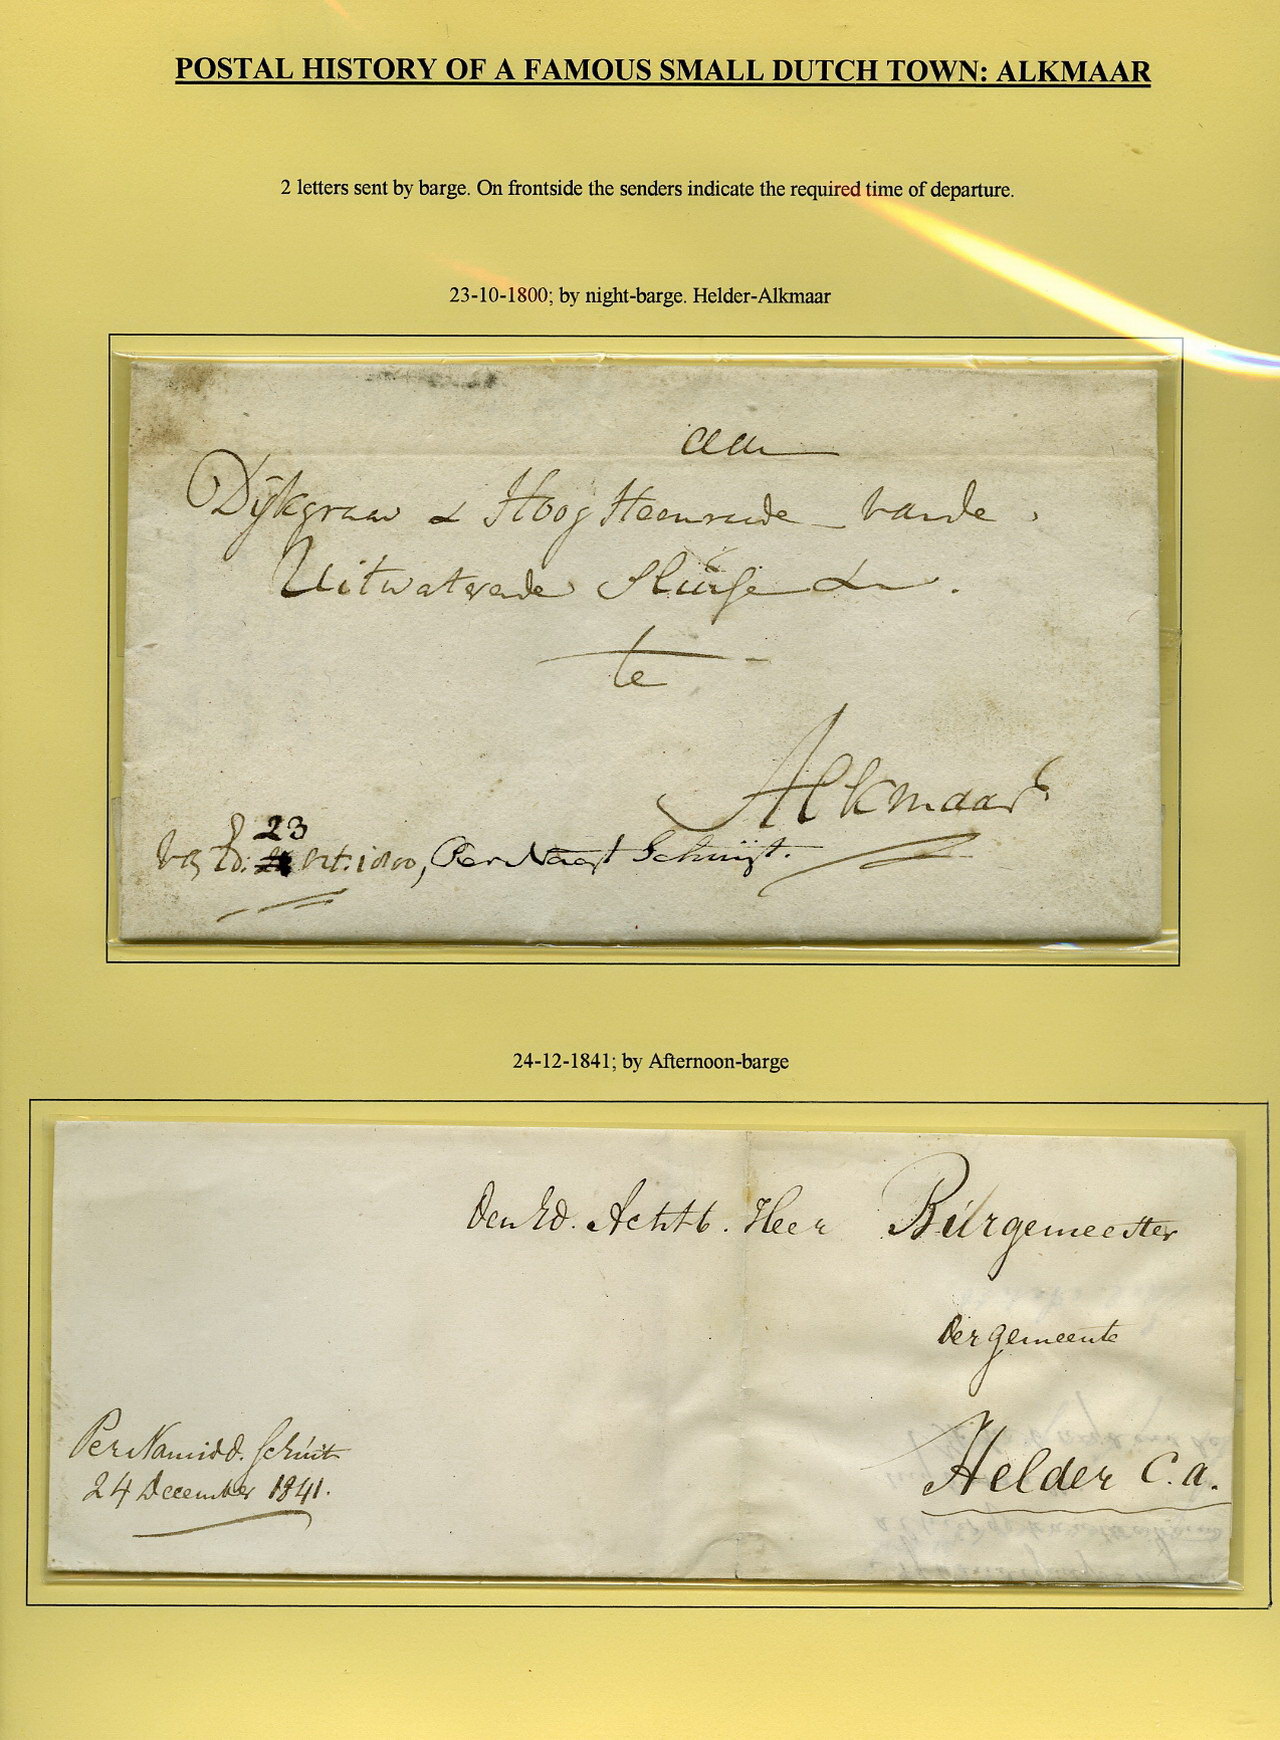 POSTAL HISTORY OF A FAMOUS SMALL DUTCH TOWN: ALKMAAR
2 letters sent by barge. On frontside the senders indicate the required time of departure.
23-10-1800; by night-barge. Helder-Alkmaar
aan
Dijkgraav & Hoog Heemrade vande
Uitwaterende Sluijse
te
Alkmaar
23
Oct. 1800, Per Nagt Schuijt.
24-12-1841; by Afternoon-barge
Den Ed. Achtb. Heer Burgemeester
der gemeente
Helder C.a.
Per Namidd. Schuit
24 December 1841.